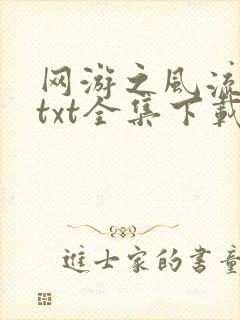 网游之风流
txt全集下载
进士家的书童